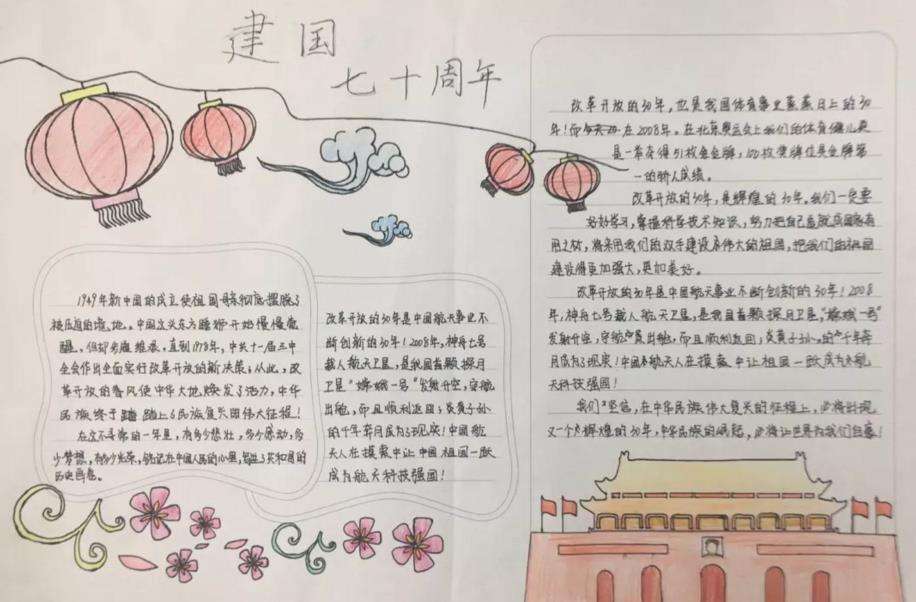 建国
七十周年
1949年新中国的成立使祖国母亲彻底摆脱了
被压迫的境地。中国这头东方睡狮开始慢慢
醒。但却步履维艰，直到1978年，中共十一届三中
全会作出全面实行改革开放的新决策；从此，改
革开放的春风使中华大地焕发了活力，中华
民族终于踏上了民族复兴的伟大征程！
在这不寻常的一年里，有多少悲壮，多少感动，多
少梦想，有多少光荣，铭记在中国人民的心里，载进了共和国的
历史画卷。
改革开放的30年是中国航天事业不
断创新的30年！2008年，神舟七号
载人航天卫星，是我国首颗探月
卫星“嫦娥一号”发射升空，穿舱
出舱，而且顺利返回；炎黄子孙
的千年奔月成为了现实！中国航
天人在摸索中让中国祖国一跃
成为航天科技强国！
改革开放的30年，也是我国体育事业蒸蒸日上的30
年！在2008年。在北京奥运会上我们的体育健儿更
是一举夺得51枚金牌，100枚奖牌位居金牌第
一的骄人成绩。
改革开放的30年，是辉煌的30年。我们一定要
好好学习，掌握科学技术知识，努力把自己造就成国家有
用之材，将来用我们的双手建设伟大的祖国，把我们的祖国
建设得更加强大，更加美好。
改革开放的30年是中国航天事业不断创新的30年！2008
年，神舟七号载人航天卫星，是我国首颗探月卫星，“嫦娥一号”
发射升空，穿舱出舱，而且顺利返回；炎黄子孙的千年奔
月成为了现实！中国航天人在摸索中让祖国一跃成为航
天科技强国！
我们坚信，在中华民族伟大复兴的征程上，必将出现
又一个辉煌的30年，中华民族的崛起，必将让世界为我们自豪！